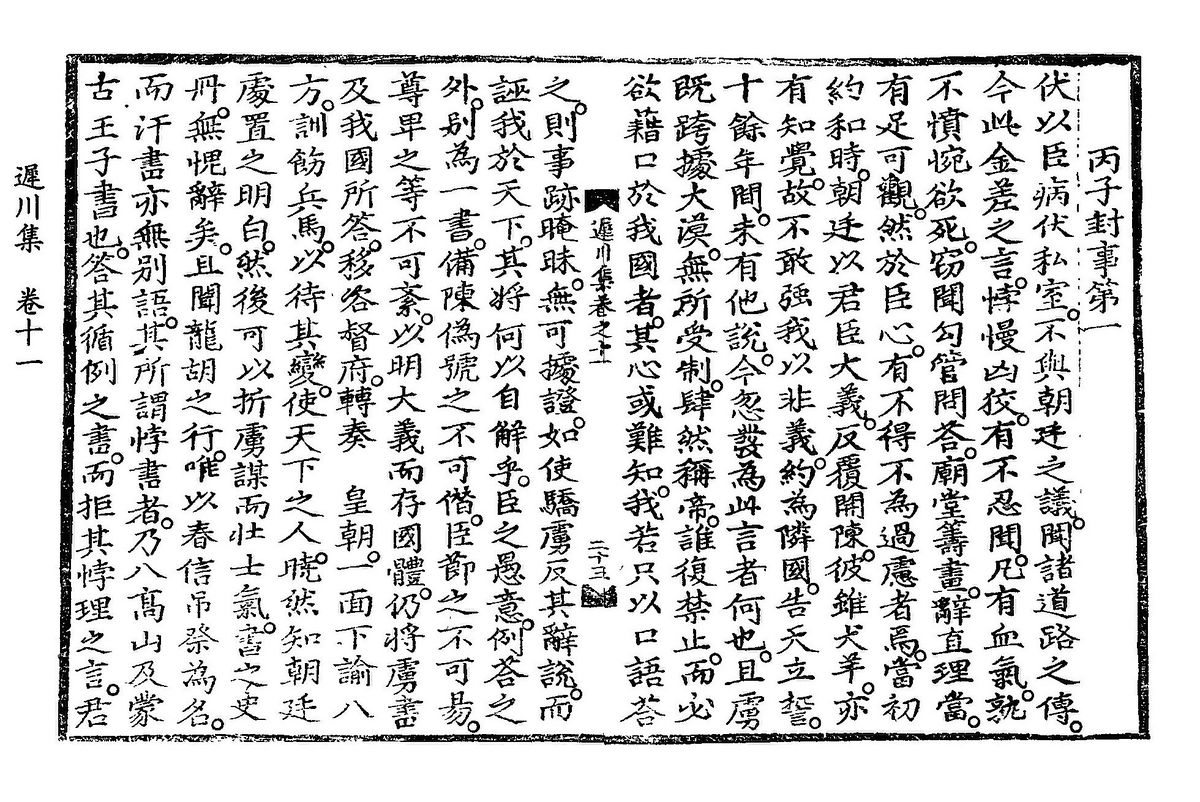 丙子封事第一
伏以臣病伏私室。不與朝廷之議。聞諸道路之傳。
今此金差之言。悖慢凶狡。有不忍聞。凡有血氣。孰
不憤惋欲死。窃聞勾管問答。廟堂籌畫。辭直理當。
有足可觀。然於臣心。有不得不為過慮者焉。當初
約和時。朝廷以君臣大義。反覆開陳。彼雖犬羊。亦
有知覺。故不敢強我以非義。約為隣國。告天立誓。
十餘年間。未有他說。今忽發為此言者何也。且虜
既跨據大漠。無所受制。肆然稱帝。誰復禁止。而必
欲藉口於我國者。其心或難知。我若只以口語答
遲川集卷之十一
二十三
之。則事跡晻昧。無可據證。如使驕虜反其辭說。而
誣我於天下。其將何以自解乎。臣之愚意。例答之
外。別為一書。備陳偽號之不可僭。臣節之不可易。
尊卑之等不可紊。以明大義而存國體。仍將虜書
及我國所答。移咨督府。轉奏　皇朝。一面下諭八
方。訓飭兵馬。以待其變。使天下之人。曉然知朝廷
處置之明白。然後可以折虜謀而壯士氣。書之史
冊。無愧辭矣。且聞龍胡之行。唯以春信吊祭為名。
而汗書亦無別語。其所謂悖書者。乃八高山及蒙
古王子書也。答其循例之書。而拒其悖理之言。君
遲川集　卷十一